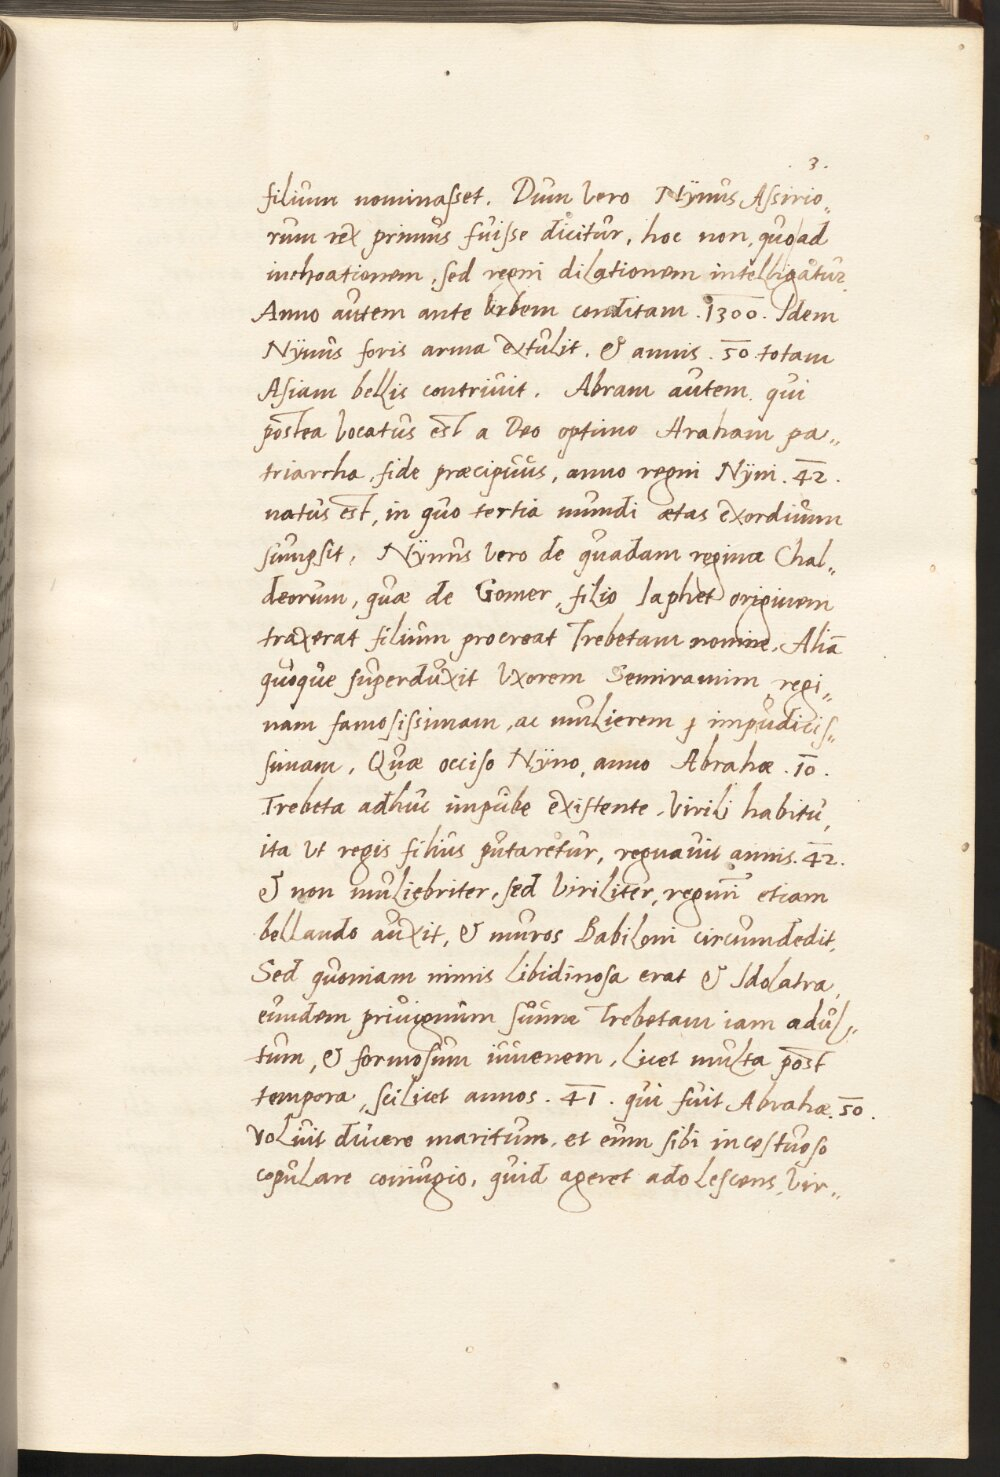 . 3 .
filium nominasset. Dum vero Nÿnus Assirio„
rum rex primus fuisse dicitur, hoc non, quo ad
inchoationem, sed regni dilationem intelligatur.
Anno autem ante Urbem conditam . 1300 . Idem
Nÿnus foris arma extulit. & annis . 50 totam
Asiam bellis contrivit. Abram autem qui
postea vocatus est a Deo optimo Araham pa„
triarcha, fide præcipuus, anno regni Nÿni . 42 .
natus est, in quo tertia mundi ætas exordium
sumpsit. Nÿnus vero de quadam regina Chal„
deorum, quæ de Gomer, filio Iaphet originem
traxerat filium procreat Trebetam nomine. Aliā
quoque superduxit Uxorem Semiramim regi„
nam famosissimam, ac mulierem impudicis„
simam. Quæ occiso Nÿno, anno Abrahæ . 10 .
Trebeta adhuc impube existente, Virili habitu,
ita ut regis filius putaretur, regnavit annis . 42 .
& non muliebriter, sed viriliter, regnū etiam
bellando auxit, & muros Babiloni circumdedit.
Sed quoniam nimis libidinosa erat & Idolatra,
eundem privignum suum Trebetam iam adul„
tum, & formosum iuvenem, licet multa post
tempora, scilicet annos . 41 . qui fuit Abrahæ . 50 .
voluit ducere maritum, et eum sibi incestuoso
copulare coniugio, quid ageret adolescens, Vir„